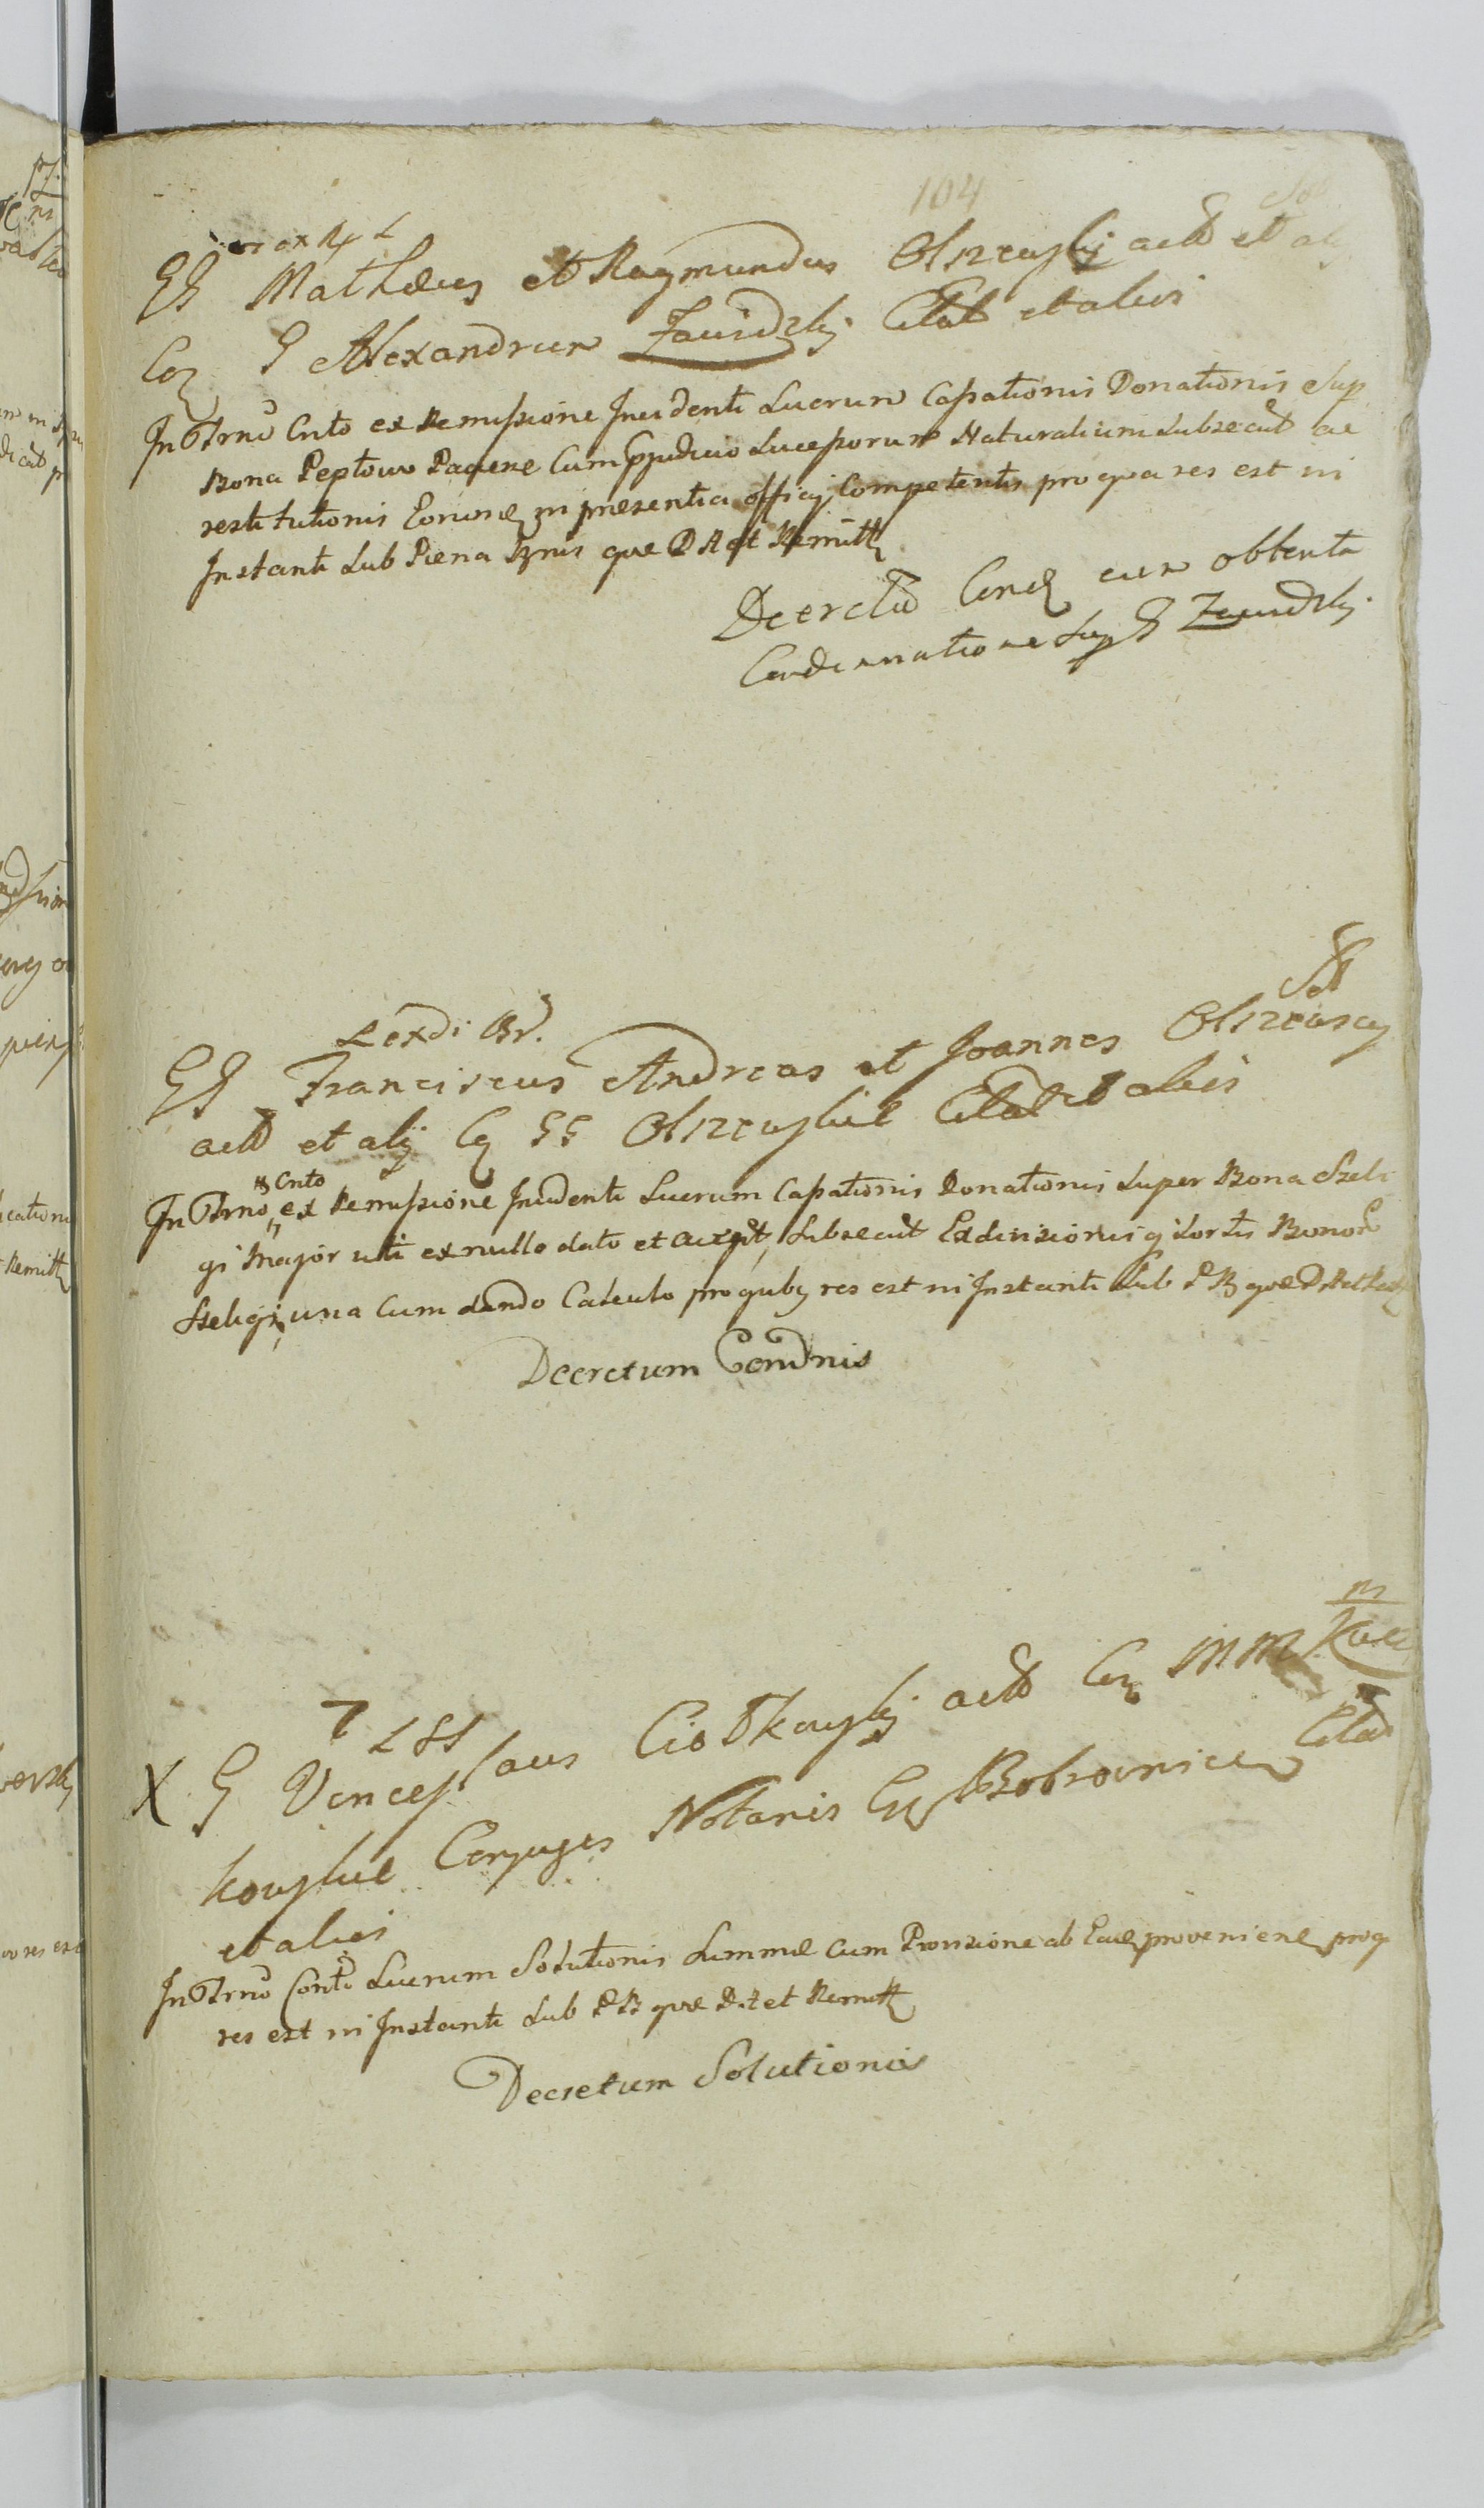 104
ex
GG Mathæus et Raymundus Olszewskj actt et alij
Con G Alexandrum Zawidzkj Citat et alios
In Trno Cnto ex Remissione Incidenti Lucrum Cassationis Donationis Sup
Bona Peptowo Pacene Cum Ppudicio Sucessorum Naturalium Subsecut ac
restitutionis Eorunд in præsentia officij Competentis pro qua res est in
Instanti Sub Pæna Bnis que D A et Remitt
Decretu Cond cum obtenta
Condemnatione Sup G Zawidzkj
Lexdi Br.
GG Franciscus Andreas et Joannes Olszewscy
actt et alij Cq GG Olszewskie Citat et alios
In Trno Cnto ex Remissione Incidenti Lucrum Cassationis Donationis Super Bona Szeli
gi Major uti ex nullo dato et accept, Subsecut Exdivisionis q Sortis Bonor
Szeligi, una Cum dando Calculo pro quby res est in Instanti Sub P B que D A et
Decretum Condnis
X G Venceslaus Ciotkowskj actt Con MM
kowskie Conjuges Notaris Bobrownicen Citat
et alios
In Trno Conto Lucrum Solutionis Summæ Cum Provisione ab Eadq proveniene proq
res est in Instanti Sub P B que D A et Remitt
Decretum Solutionis